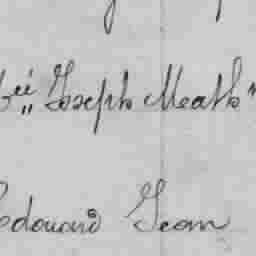 „ Joseph Meath "
Edouard Jean